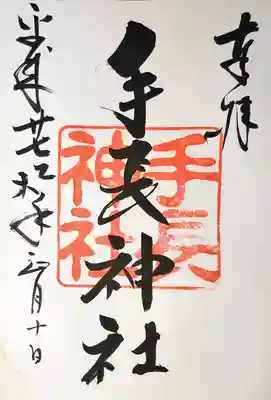 奉拝
手長神社
手長神社
平成廿七乙未年三月十日